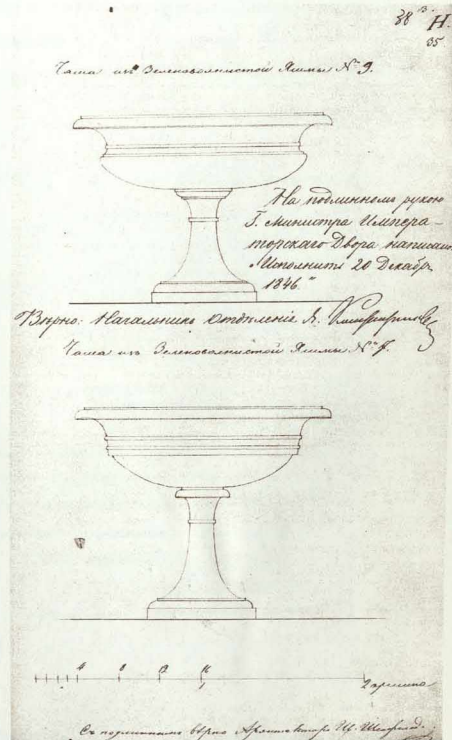 38
H.
35
Чаша изъ Зеленоволнистой Яшмы №
На подлинномъ рукою
Г. Министра Импера-
торскаго Двора написано
„Исполнить 20 Декабр.
1846."
Вѣрно: Начальникъ Отдѣленія
Чаша изъ Зеленоволнистой Яшмы №
4 8 12 16
2 аршина
Съ подлиннымъ вѣрно Архитекторъ